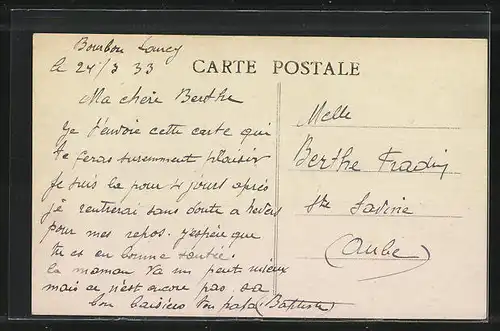 Bourbon Lancy
le 24/3 33
CARTE POSTALE
Ma chère Berthe
Je t'envoie cette carte qui
te feras surement plaisir
Je suis la pour 4 jours après
je rentrerai sans doute a
pour mes repos. j'espère que
tu es en bonne santée.
la maman va un petit mieux
mais ce n'est encore pas sa
bon baisiers ton papa (Baptiste)
Melle
Berthe Fradin
Ste Savine
(Aube)